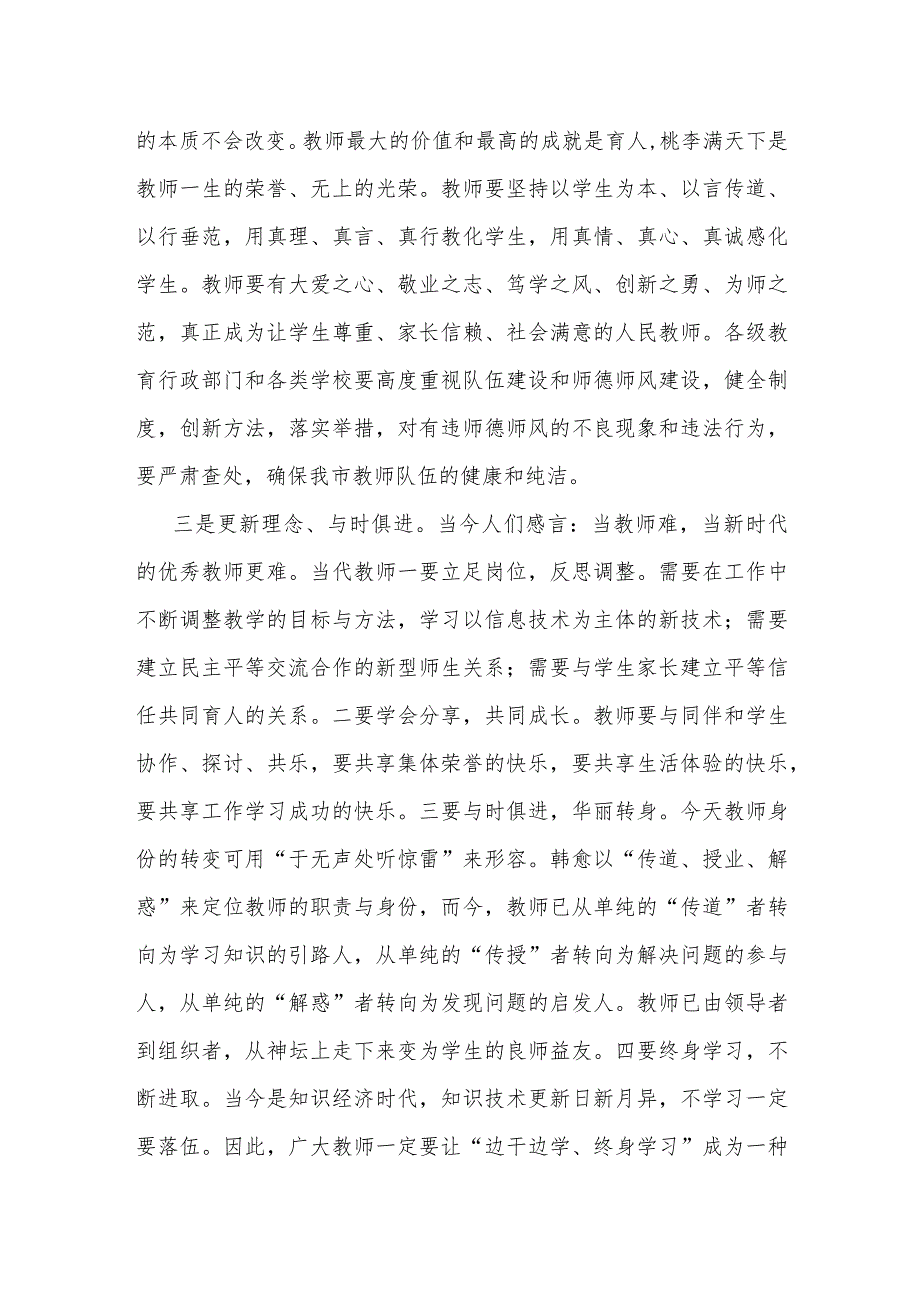 的本质不会改变。教师最大的价值和最高的成就是育人,桃李满天下是
教师一生的荣誉、无上的光荣。教师要坚持以学生为本、以言传道、
以行垂范，用真理、真言、真行教化学生，用真情、真心、真诚感化
学生。教师要有大爱之心、敬业之志、笃学之风、创新之勇、为师之
范，真正成为让学生尊重、家长信赖、社会满意的人民教师。各级教
育行政部门和各类学校要高度重视队伍建设和师德师风建设，健全制
度，创新方法，落实举措，对有违师德师风的不良现象和违法行为，
要严肃查处，确保我市教师队伍的健康和纯洁。
三是更新理念、与时俱进。当今人们感言：当教师难，当新时代
的优秀教师更难。当代教师一要立足岗位，反思调整。需要在工作中
不断调整教学的目标与方法，学习以信息技术为主体的新技术；需要
建立民主平等交流合作的新型师生关系；需要与学生家长建立平等信
任共同育人的关系。二要学会分享，共同成长。教师要与同伴和学生
协作、探讨、共乐，要共享集体荣誉的快乐，要共享生活体验的快乐，
要共享工作学习成功的快乐。三要与时俱进，华丽转身。今天教师身
份的转变可用“于无声处听惊雷”来形容。韩愈以“传道、授业、解
惑”来定位教师的职责与身份，而今，教师已从单纯的“传道”者转
向为学习知识的引路人，从单纯的“传授”者转向为解决问题的参与
人，从单纯的“解惑”者转向为发现问题的启发人。教师已由领导者
到组织者，从神坛上走下来变为学生的良师益友。四要终身学习，不
断进取。当今是知识经济时代，知识技术更新日新月异，不学习一定
要落伍。因此，广大教师一定要让“边干边学、终身学习”成为一种